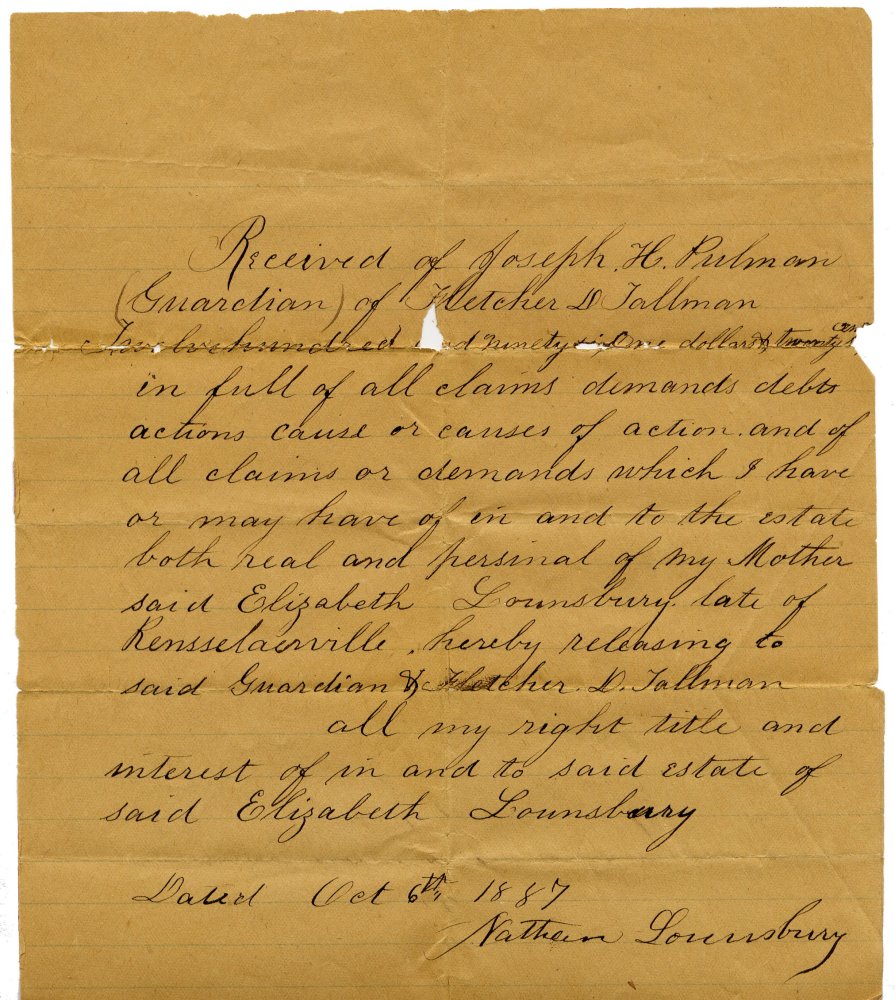 Received of Joseph. H. Pulman
(Guardian) of Fletcher D Tallman
Twelvehundred and ninety dollars & twenty cents
in full of all claims demands debts
actions cause or causes of action. and of
all claims or demands which I have
or may have of in and to the estate
both real and persinal of my Mother
said Elizabeth Lounsbury. late of
Rensselaerville, hereby releasing to
said Guardian & Fletcher. D. Tallman
all my right title and
interest of in and to said estate of
said Elizabeth Lounsbury
Dated Oct 6th, 1887
Nathan Lounsbury